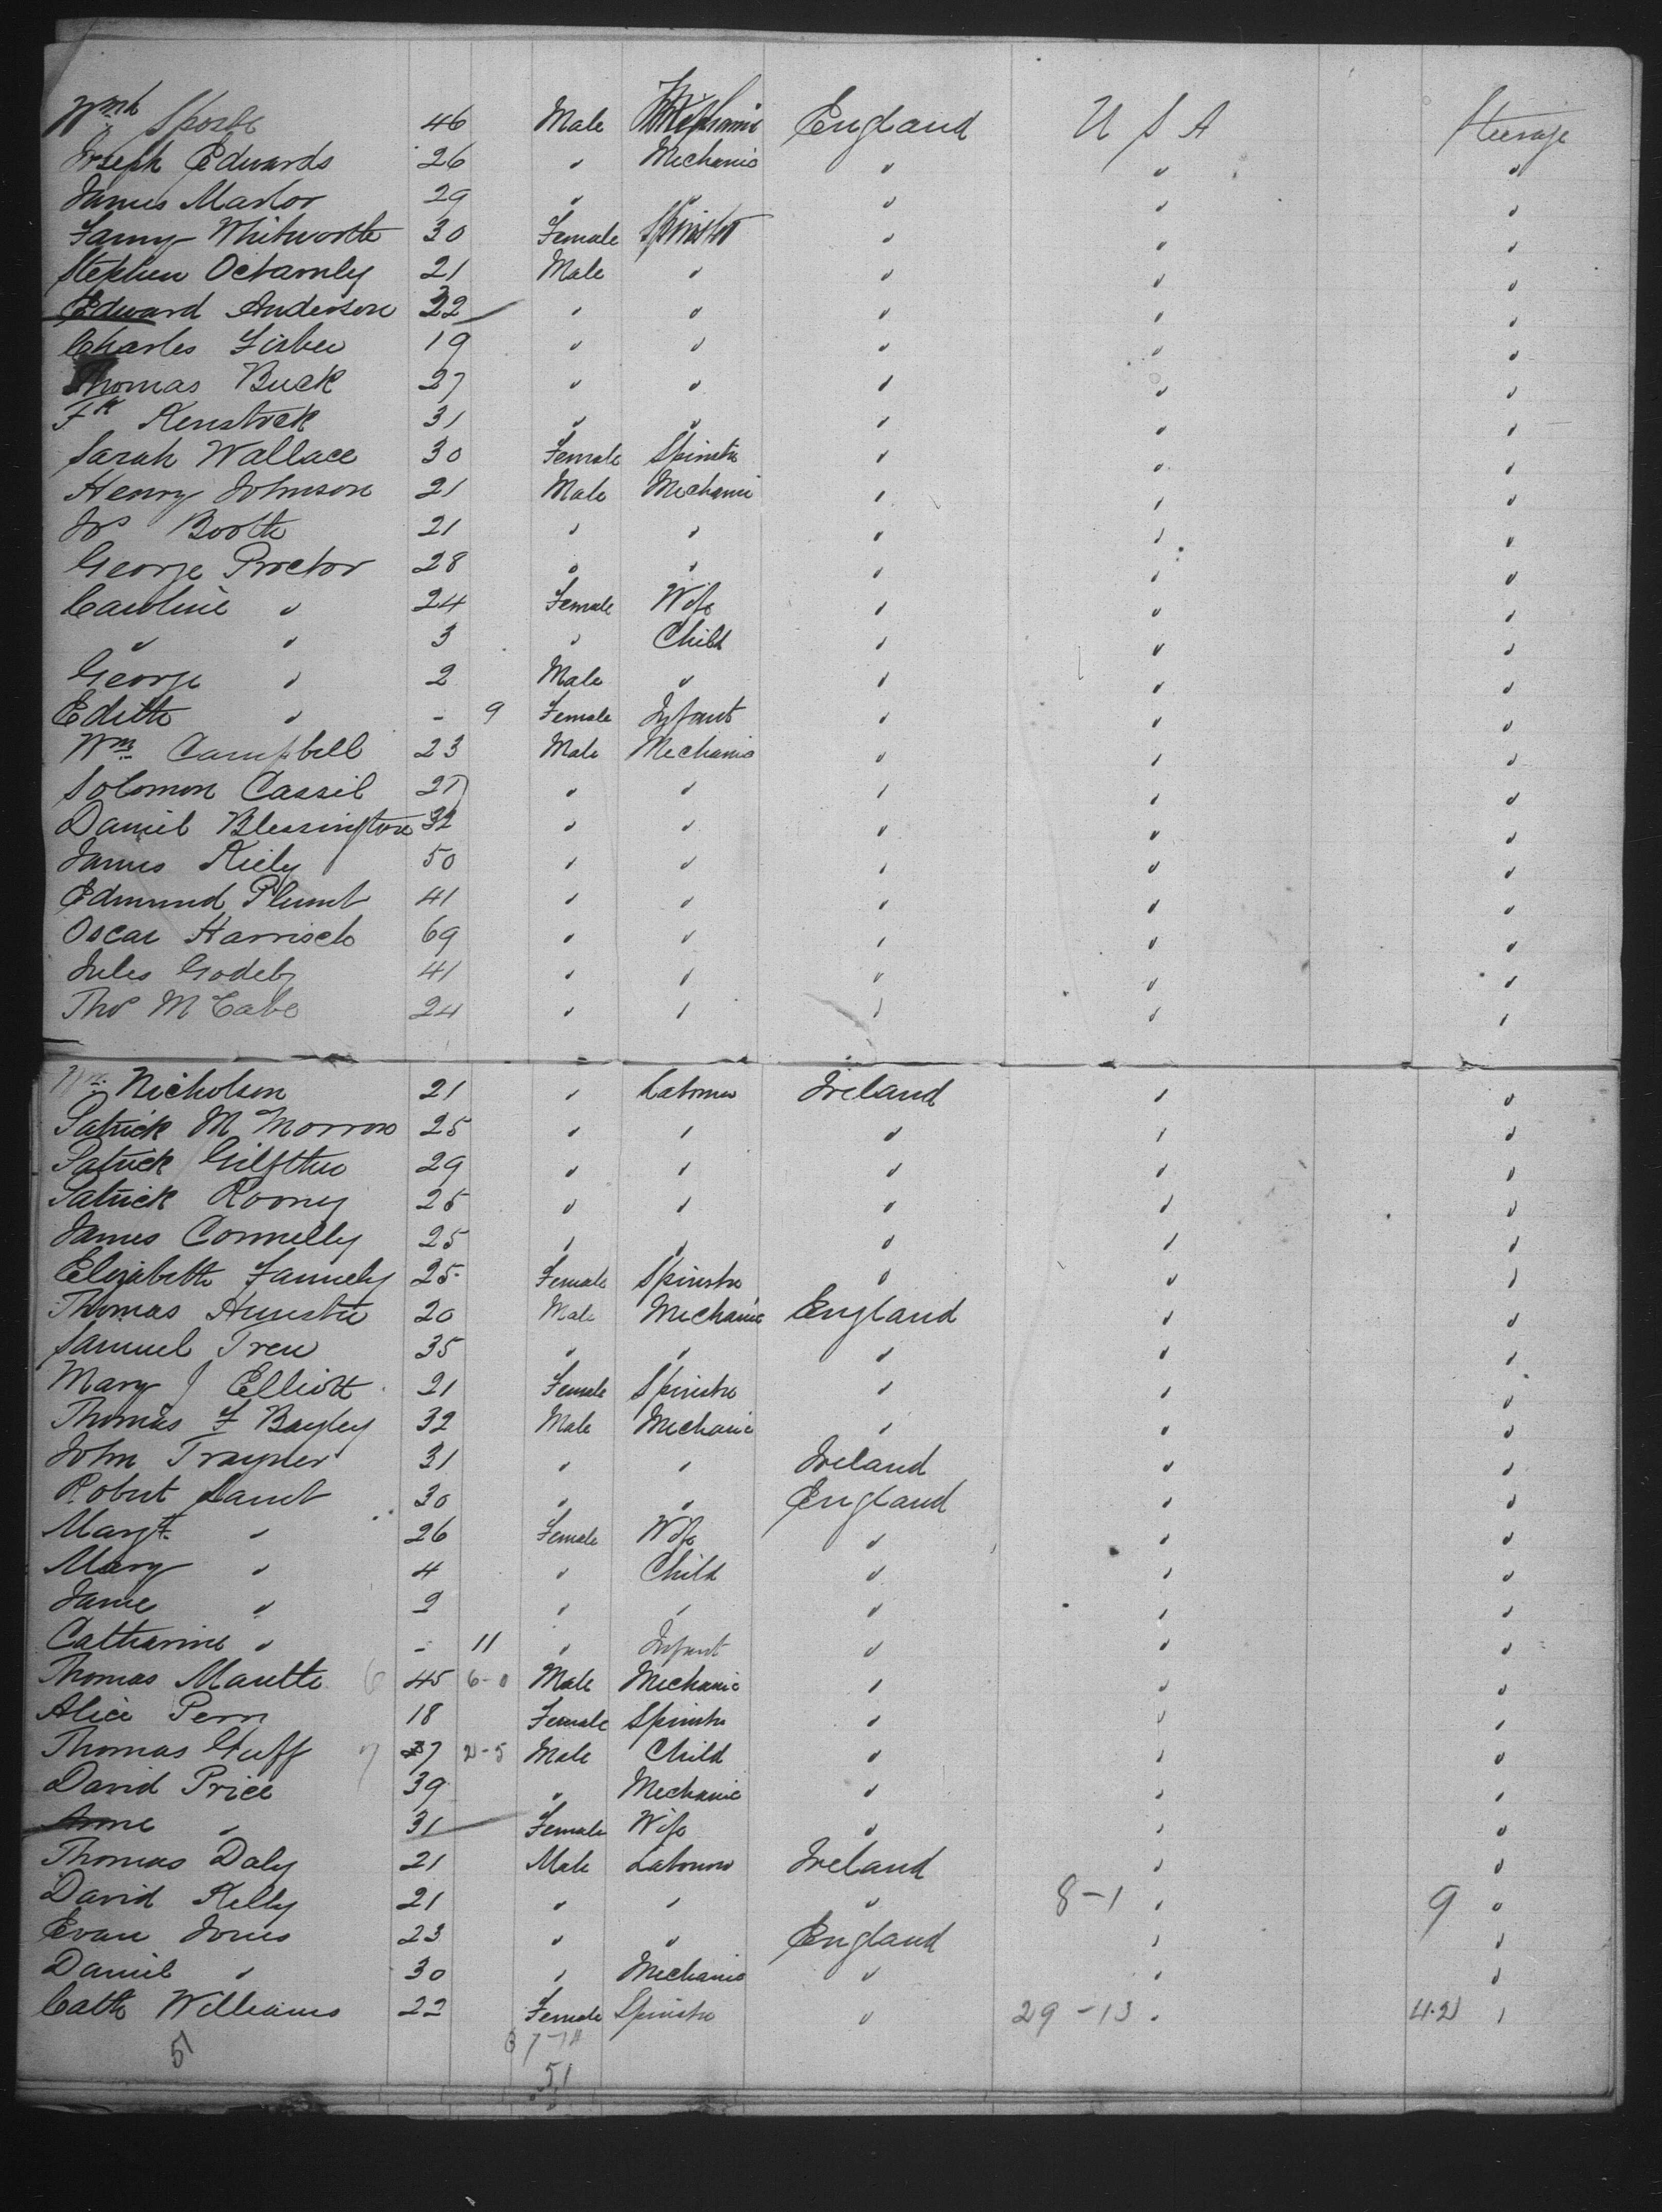 Wm Sporle 46 Male Mechanic England U S A Steerage
Joseph Edwards 26 " Mechanic " " "
James Marlor 29 " " " "
Fanny Whitworth 30 Female Spinster " " "
Stephen 21 Male " " " "
Edward Anderson 32 " " " " "
Charles Fisher 19 " " " " "
Thomas Buck 27 " " " " "
Fk Kenstock 31 " " " " "
Sarah Wallace 30 Female Spinstr " " "
Henry Johnson 21 Male Mechanic " " "
Jos Booth 21 " " " " "
George Proctor 28 " " " " "
Caroline " 24 Female Wife " " "
" " 3 " Child " " "
George " 2 Male " " " "
Edith " - 9 Female Infant " " "
Wm Campbell 23 Male Mechanic " " "
Solomon Cassil 27 " " " " "
Daniel Blessington 32 " " " " "
James Kiely 50 " " " " "
Edmund Plumb 41 " " " " "
Oscar 69 " " " " "
Jules 41 " " " " "
Thos McCabe 24 " " " " "
Wm Nicholson 21 " Labourer Ireland " "
Patrick McMorrow 25 " " " " "
Patrick 29 " " " " "
Patrick Roony 25 " " " " "
James Connelly 25 " " " " "
Elizabeth 25 Female Spinstr " " "
Thomas 20 Male Mechanic England " "
Samuel 35 " " " " "
Mary J Elliott 21 Female Spinstr " " "
Thomas F Bayley 32 Male Mechanic " " "
John Trayner 31 " " Ireland " "
Robert Lamb 30 " " England " "
Margt " 26 Female Wife " " "
Mary " 4 " Child " " "
Jane " 2 " " " " "
Catharine " - 11 " Infant " " "
Thomas 6 45 6-0 Male Mechanic " " "
Alice 18 Female Spinstr " " "
Thomas 7 37 2-5 Male Child " " "
David Price 39 " Mechanic " " "
Anne " 31 Female Wife " " "
Thomas Daly 21 Male Labourer Ireland " "
David Kelly 21 " " " 8-1 " 9 "
Evan Jones 23 " " England " "
Daniel " 30 " Mechanic " " "
Cath Williams 22 Female Spinstr " 29-13 " 42 "
51 37-14
51